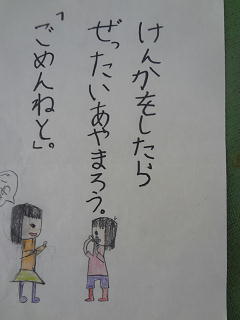 けんかをしたら
ぜったいあやまろう。
「ごめんねと」。